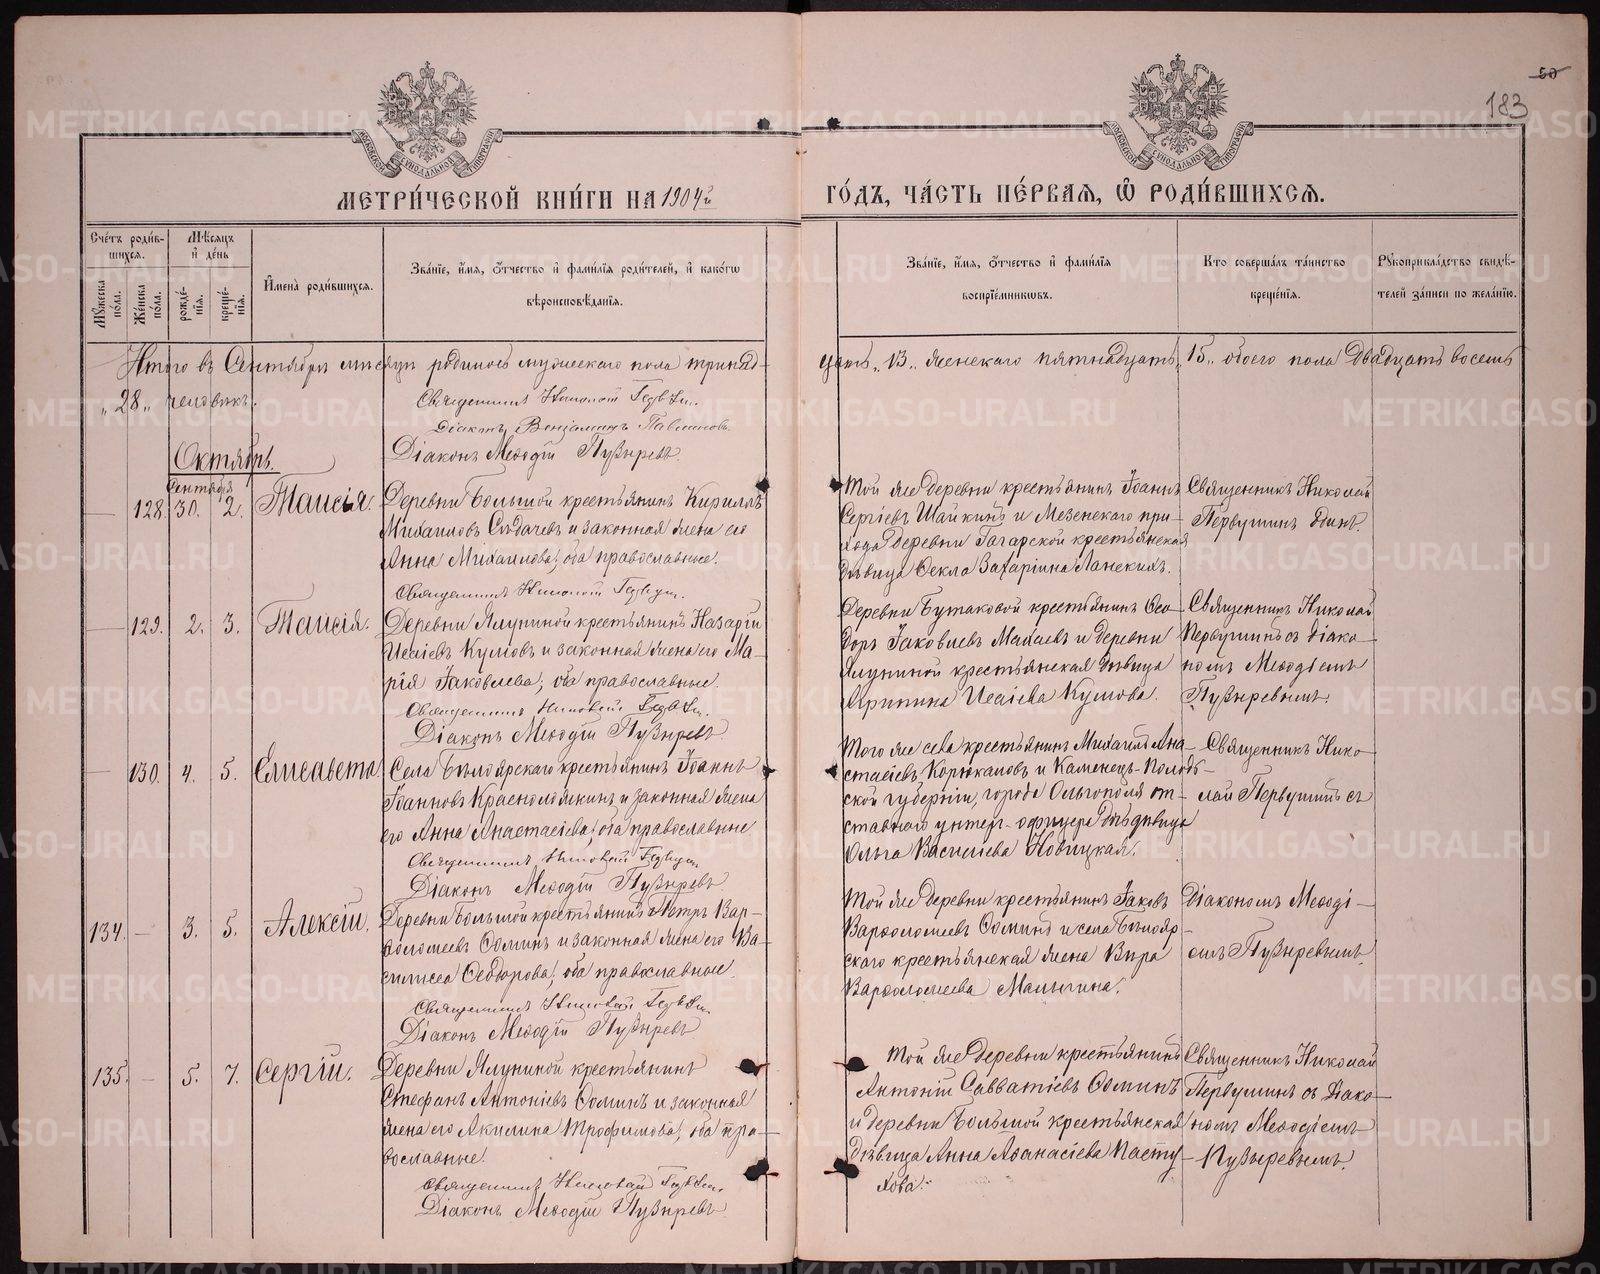 50
183
МОСКОВСКОЙ СѴНОДАЛЬНОЙ ТИПОГРАФІИ
МОСКОВСКОЙ СѴНОДАЛЬНОЙ ТИПОГРАФІИ
МЕТРИ́ЧЕСКОЙ КНИ́ГИ НА 1904й
ГО́ДЪ, ЧА́СТЬ ПЕ́РВАЯ, Ѡ҆ РОДИ́ВШИХСЯ.
Сче́тъ роди́в-
шихся.
Мꙋ́жеска по́ла.
Же́нска по́ла.
Мѣ́сяцъ
и҆ де́нь
рожде́-
нїя.
креще́-
нїя.
И҆мена̀ роди́вшихся.
Зва́нїе, и҆́мя, ѻ҆́тчество и҆ фами́лїя роди́телей, и҆ како́гѡ
вѣроисповѣ́данїя.
Зва́нїе, и҆́мя, ѻ҆́тчество и҆ фами́лїя
воспрїе́мникѡвъ.
Кто̀ соверша́лъ та́инство
креще́нїя.
Рꙋкоприкла́дство свидѣ́-
телей за́писи по жела́нїю.
Итого въ Сентябрѣ мѣсяцѣ родилось мужескаго пола тринад-
цать „13„ женскаго пятнадцать „15„ обоего пола двадцать восемь
„28„ человѣкъ.
Священникъ Николай
Діаконъ
Діаконъ Меѳодій Пузыревъ.
Октябрь.
Сентябрь
128. 30. 2. Таисія.
Деревни Большой крестьянинъ Кириллъ
Михаиловъ и законная жена его
Анна Михаилова; оба православные.
Священникъ Николай
Той же деревни крестьянинъ Іоаннъ
Сергіевъ Шайкинъ и Мезенскаго при-
хода деревни Гагарской крестьянская
дѣвица Ѳекла Захаріина Ланскихъ.
Священникъ Николай
Первушинъ одинъ.
129. 2. 3. Таисія.
Деревни Ялуниной крестьянинъ Назарій
Исаіевъ Кулповъ и законная жена его Ма-
рія Іаковлева; оба православные.
Священникъ Николай
Діаконъ Меѳодій Пузыревъ
Деревни Бутаковой крестьянинъ Ѳео-
доръ Іаковлевъ Малаевъ и деревни
Ялуниной крестьянская дѣвица
Агрипина Исаіева
Священникъ Николай
Первушинъ съ діако-
номъ Меѳодіемъ
Пузыревымъ.
130. 4. 5. Елисавета
Села Бѣлоярскаго крестьянинъ Іоаннъ
Іоанновъ и законная жена
его Анна Анастасіева; оба православные
Священникъ Николай
Діаконъ Меѳодій Пузыревъ
Того же села крестьянинъ Михаилъ Ана-
стасіевъ Корюкаловъ и Каменецъ-Подоль-
ской губерніи, города Ольгополя от-
ставного унтеръ-офицера дѣвица
Ольга Васильева Новицкая.
Священникъ Нико-
лай Первушинъ съ
134. 3. 5. Алексій.
Деревни Большой крестьянинъ Петръ Вар-
ѳоломеевъ Ѳоминъ и законная жена его Ва-
силисса Ѳеодорова; оба православные.
Священникъ Николай
Діаконъ Меѳодій Пузыревъ
Той же деревни крестьянинъ Іаковъ
Варѳоломеевъ Ѳоминъ и села Бѣлояр-
скаго крестьянская жена Вѣра
Варѳоломеева Малыгина.
Діакономъ Меѳоді-
емъ Пузыревымъ.
135. 5. 7. Сергій.
Деревни Ялуниной крестьянинъ
Стефанъ Антоніевъ Ѳоминъ и законная
жена его Акилина Трофимова; оба пра-
вославные.
Священникъ Николай
Діаконъ Меѳодій Пузыревъ
Той же деревни крестьянинъ
Антоній Савватіевъ Ѳоминъ
и деревни Большой крестьянская
дѣвица Анна Аѳанасіева Пасту-
хова.
Священникъ Николай
Первушинъ съ діако-
номъ Меѳодіемъ
Пузыревымъ.
METRIKI.GASO-URAL.RU